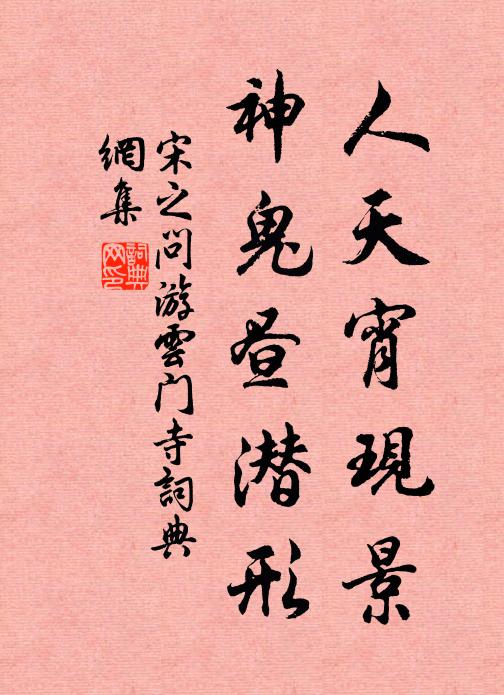 人天宵現景
神鬼昼潜形
宋之问游雲门寺詞典
網集
詞典網印